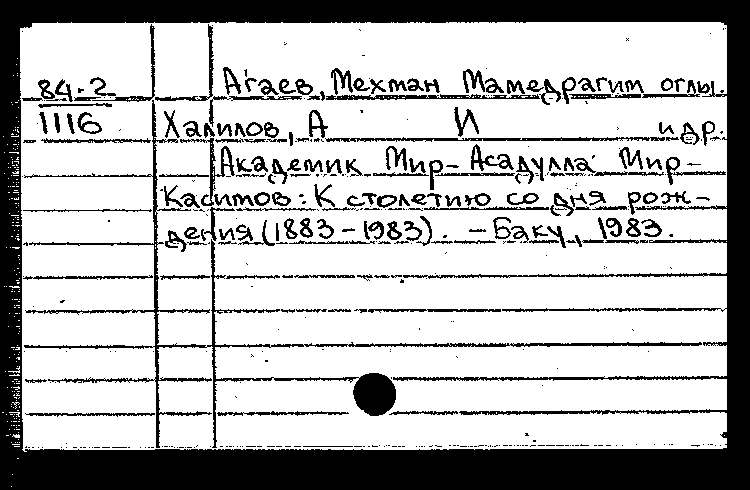 84-2 Агаев, Мехман Мамедрагим оглы.
1116 Халилов, А И и др.
Академик Мир-Асадулла Мир-
Касимов: К столетию со дня рож-
дения (1883-1983). - Баку, 1983.